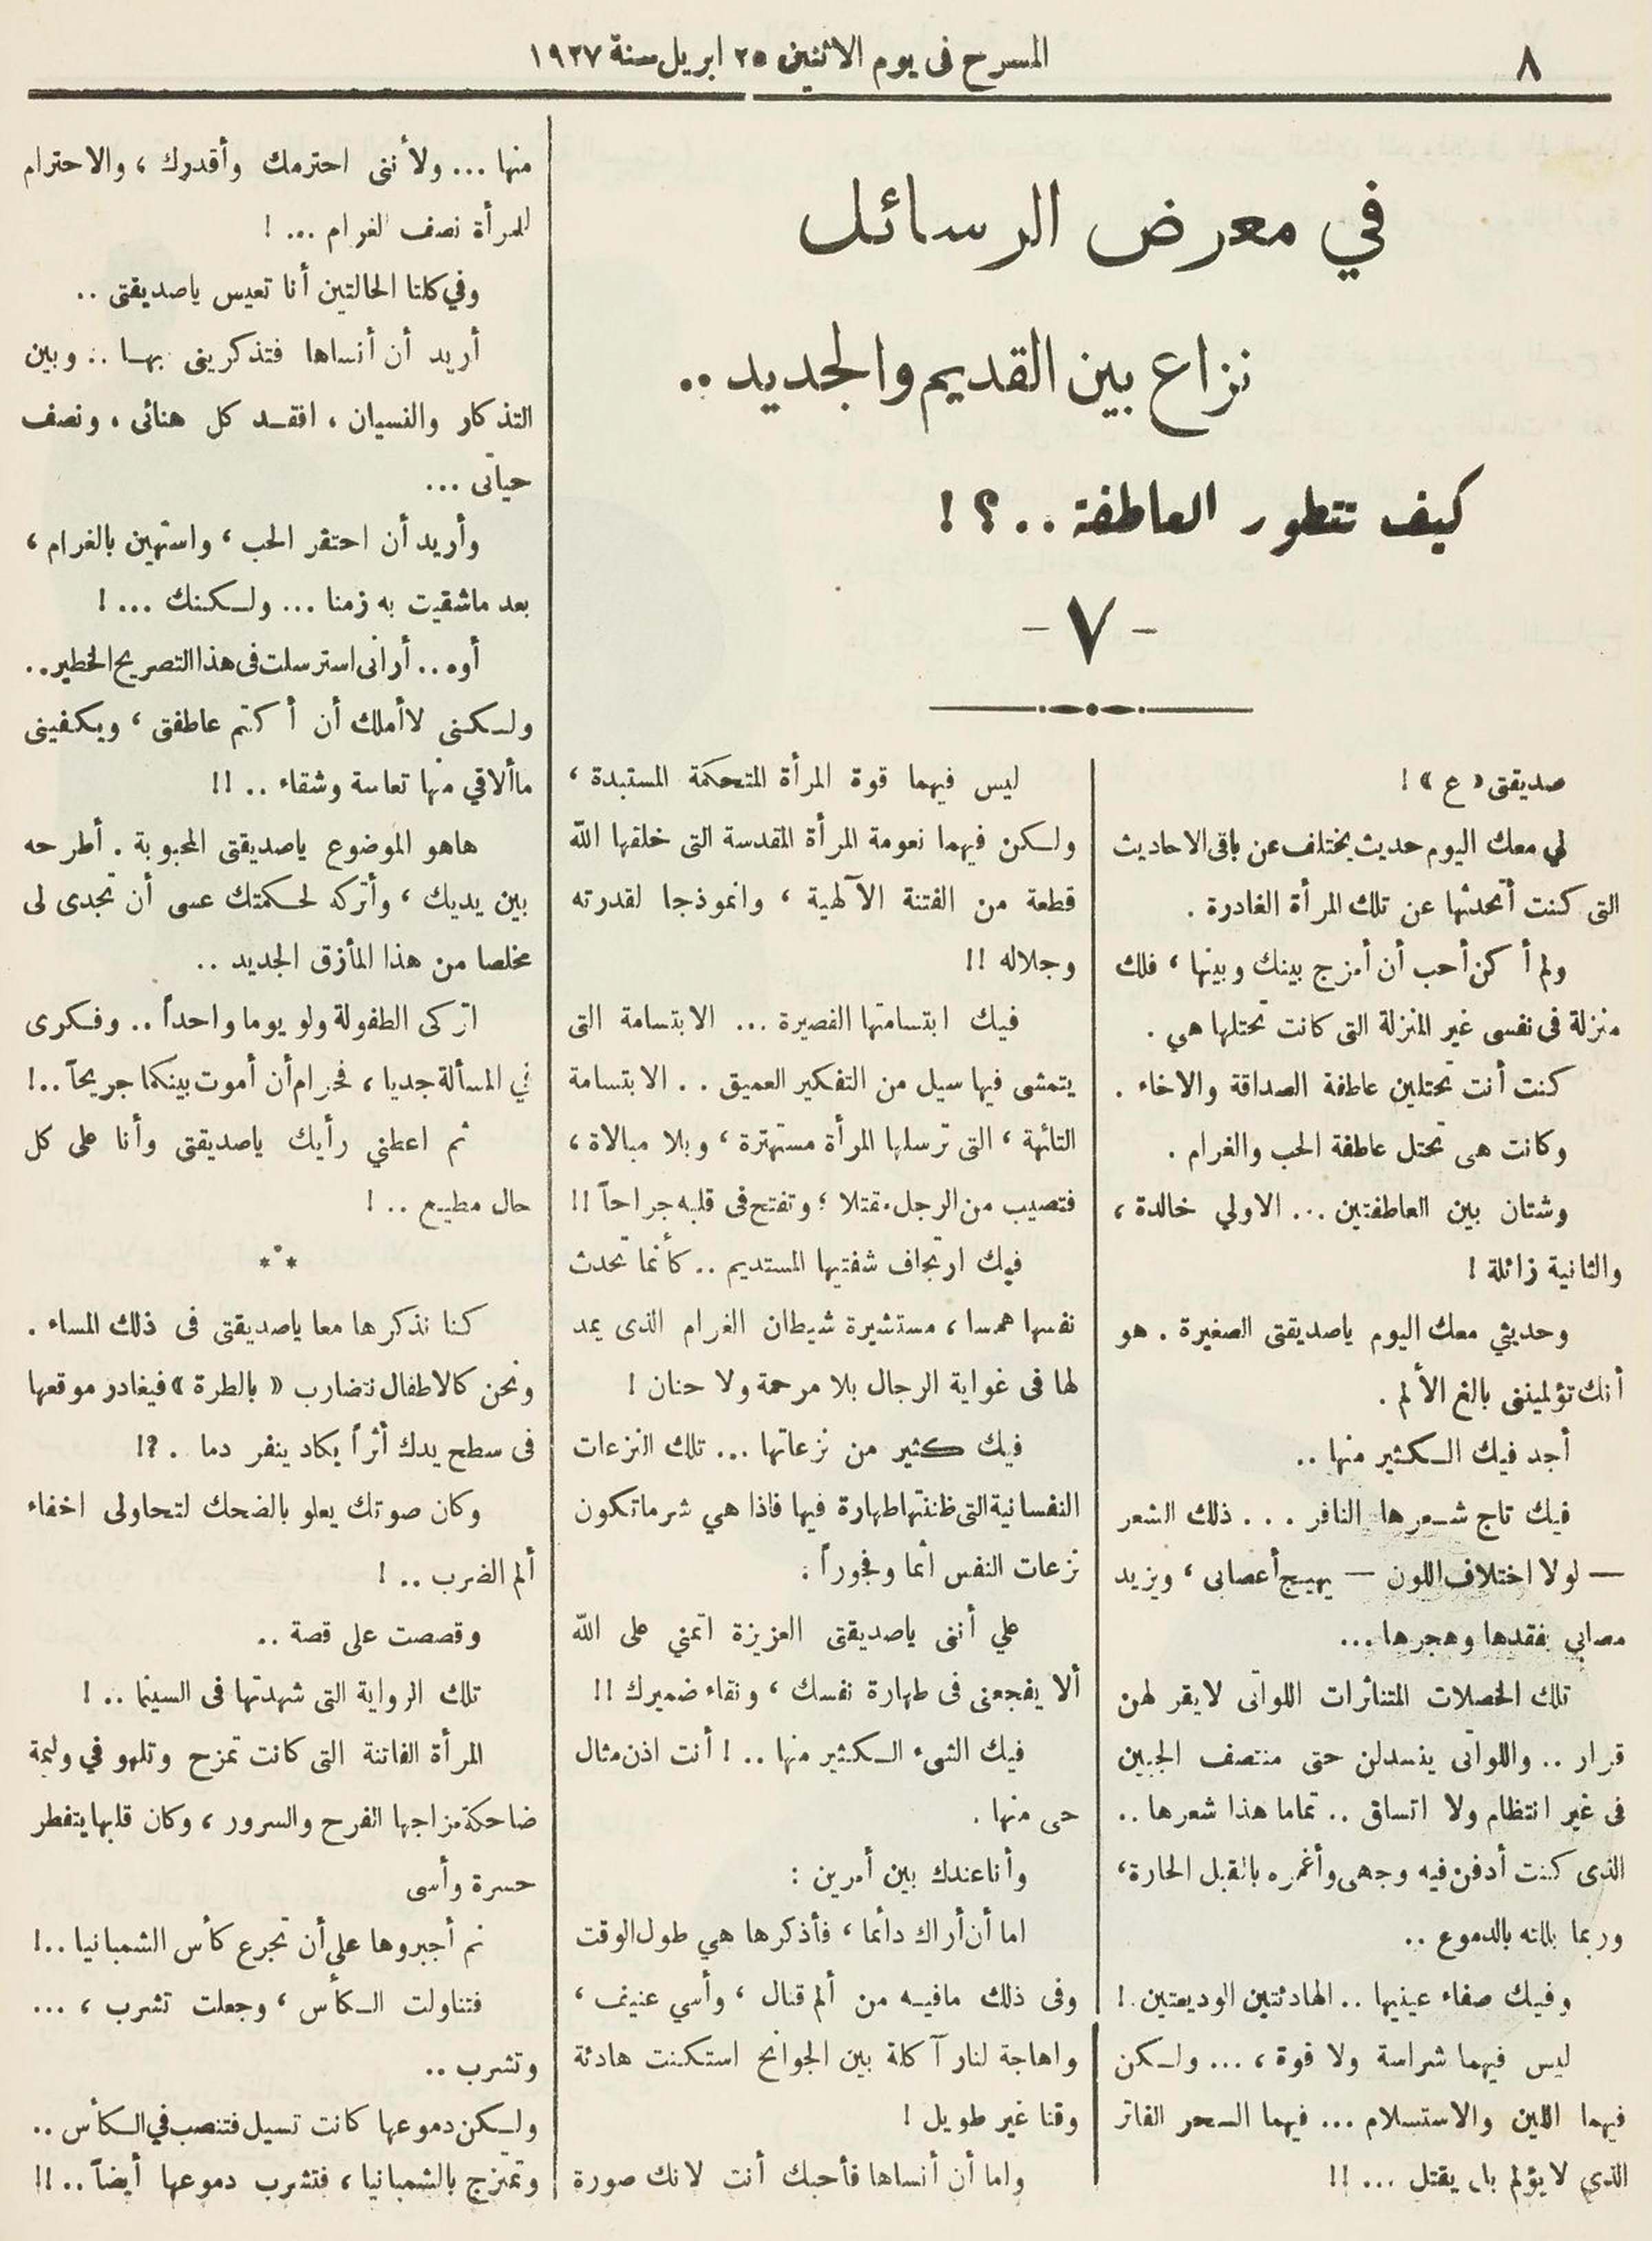 ٨
المسرح فى يوم الاثنين ٢٥ ابريل سنة ١٩٢٧
في معرض الرسائل
نزاع بين القديم والجديد ..
كيف تتطور العاطفة ..؟ !
- ٧ -
صديقتى « ع » !
لي معك اليوم حديث يختلف عن باقى الاحاديث
التى كنت أتحدثها عن تلك المرأة الغادرة .
ولم أكن أحب أن أمزج بينك وبينها ، فلك
منزلة فى نفسى غير المنزلة التى كانت تحتلها هي .
كنت أنت تحتلين عاطفة الصداقة والاخاء .
وكانت هى تحتل عاطفة الحب والغرام .
وشتان بين العاطفتين ... الاولي خالدة ،
والثانية زائلة !
وحديثي معك اليوم ياصديقتى الصغيرة . هو
أنك تؤلميننى بالغ الألم .
أجد فيك الكثير منها ..
فيك تاج شعرها النافر . . . ذلك الشعر
— لولا اختلاف اللون — يهيج أعصابى ، ويزيد
مصابي بفقدها وهجرها ...
تلك الخصلات المتناثرات اللواتى لا يقر لهن
قرار .. واللواتى ينسدلن حتى منتصف الجبين
فى غير انتظام ولا اتساق .. تماما هذا شعرها ..
الذى كنت أدفن فيه وجهى وأغمره بالقبل الحارة ،
وربما بللته بالدموع ..
وفيك صفاء عينيها .. الهادئتين الوديعتين . !
ليس فيهما شراسة ولا قوة ، ... ولكن
فيهما اللين والاستسلام ... فيهما السحر الفاتر
الذي لا يؤلم بل يقتل ... !!
ليس فيهما قوة المرأة المتحكمة المستبدة ،
ولكن فيهما نعومة المرأة المقدسة التى خلقها الله
قطعة من الفتنة الآلهية ، وانموذجا لقدرته
وجلاله !!
فيك ابتسامتها القصيرة ... الابتسامة التى
يتمشى فيها سيل من التفكير العميق . . الابتسامة
التائهة ، التى ترسلها المرأة مستهترة ، وبلا مبالاة ،
فتصيب من الرجل مقتلا ؛ وتفتح فى قلبه جراحاً !!
فيك ارتجاف شفتيها المستديم .. كأنما تحدث
نفسها همسا ، مستشيرة شيطان الغرام الذى يمد
لها فى غواية الرجال بلا مرحمة ولا حنان !
فيك كثير من نزعاتها ... تلك النزعات
النفسانية التى ظننتها طهارة فيها فاذا هي شر ما تكون
نزعات النفس أثما وفجوراً :
علي أننى ياصديقتى العزيزة اتمني على الله
ألا يفجعنى فى طهارة نفسك ، ونقاء ضميرك !!
فيك الشىء الكثير منها .. ! أنت اذن مثال
حى منها .
وأنا عندك بين أمرين :
اما أن أراك دأئما ، فأذكرها هي طول الوقت
وفى ذلك مافيه من ألم قتال ، وأسي عنيف ،
واهاجة لنار آكلة بين الجوانح استكنت هادئة
وقتا غير طويل !
واما أن أنساها فأحبك أنت لانك صورة
منها ... ولأننى احترمك وأقدرك ، والاحترام
للمرأة نصف الغرام ... !
وفي كلتا الحالتين أنا تعيس ياصديقتى ..
أريد أن أنساها فتذكرينى بها .. وبين
التذكار والنسيان ، افقد كل هنائى ، ونصف
حياتى ...
وأريد أن احتقر الحب ، واستهين بالغرام ،
بعد ماشقيت به زمنا ... ولكنك ... !
أوه .. أرانى استرسلت فى هذا التصريح الخطير ..
ولكنى لا أملك أن أكتم عاطفتى ، ويكفينى
ما ألاقي منها تعاسة وشقاء .. !!
هاهو الموضوع ياصديقتى المحبوبة . أطرحه
بين يديك ، وأتركه لحكمتك عسى أن تجدى لى
مخلصا من هذا المأزق الجديد ..
اتركى الطفولة ولو يوما واحداً .. وفكرى
في المسألة جديا ، فحرام أن أموت بينكما جريحاً ..!
ثم اعطني رأيك ياصديقتى وأنا على كل
حال مطيع .. !
***
كنا نذكرها معا ياصديقتى فى ذلك المساء .
ونحن كالاطفال نتضارب « بالطرة » فيغادر موقعها
فى سطح يدك أثراً يكاد ينفر دما . ?!
وكان صوتك يعلو بالضحك لتحاولى اخفاء
ألم الضرب .. !
وقصصت على قصة ..
تلك الرواية التى شهدتها فى السينما .. !
المرأة الفاتنة التى كانت تمزح وتلهو في وليمة
ضاحكة مزاجها الفرح والسرور ، وكان قلبها يتفطر
حسرة وأسى
ثم أجبروها على أن تجرع كأس الشمبانيا ..!
فتناولت الكأس ، وجعلت تشرب ، ...
وتشرب ..
ولكن دموعها كانت تسيل فتنصب في الكأس ..
وتمتزج بالشمبانيا ، فتشرب دموعها أيضاً .. !!